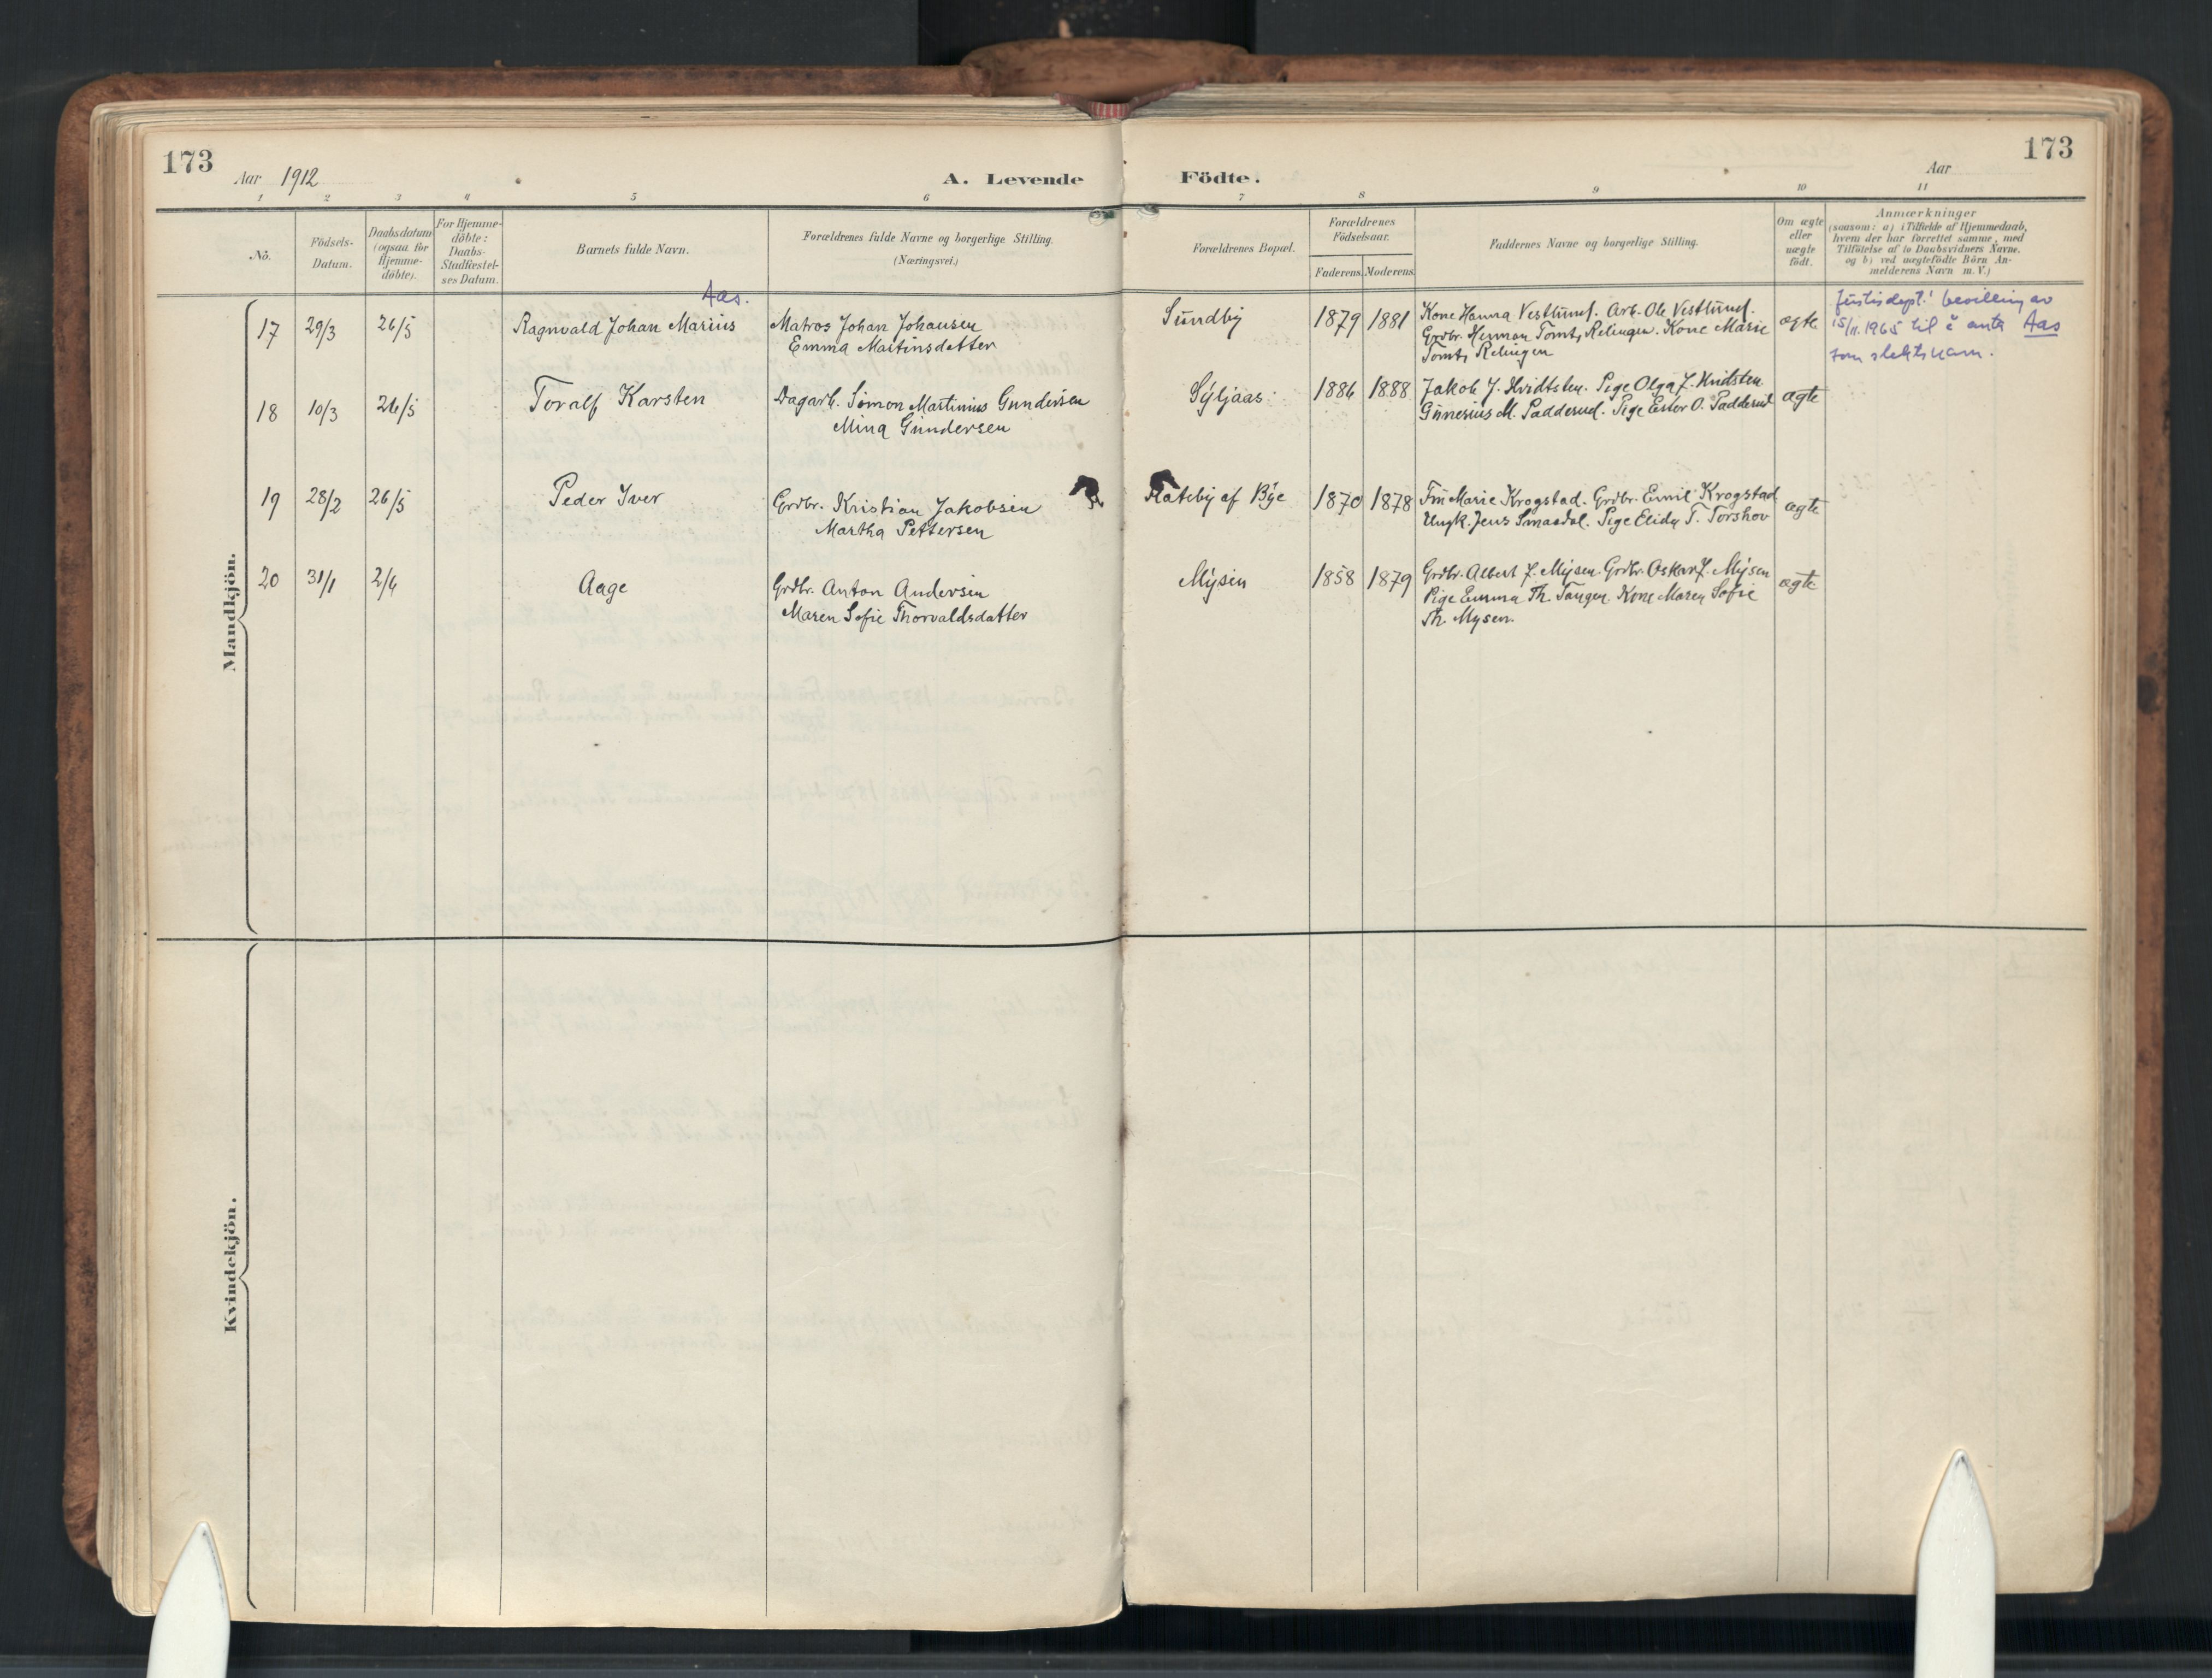 173
Aar 1912
A. Levende Födte.
Aar
173
1 2 3 4 5 6 7 8 9 10 11
No.
Födsels-
Datum.
Daabsdatum
(ogsaa for
Hjemme-
döbte).
For Hjemme-
döbte:
Daabs-
Stadfæstel-
ses Datum.
Barnets fulde Navn.
Forældrenes fulde Navne og borgerlige Stilling.
(Næringsvei.)
Forældrenes Bopæl.
Forældrenes
Födselsaar.
Faderens. Moderens.
Faddernes Navne og borgerlige Stilling.
Om ægte
eller
uægte
födt.
Anmærkninger
(saasom: a) i Tilfælde af Hjemmedaab,
hvem der har forrettet samme, med
Tilföielse af to Daabsvidners Navne.
og b) ved uægtefödte Börn An-
melderens Navn m. V.)
Mandkjön.
Aas.
17 29/3 26/5 Ragnvald Johan Marius
Matros Johan Johansen
Emma Martinsdatter
Sundby 1879 1881
Kone Hanna Vestlund. Arb. Ole Vestlund.
Grdbr. Herman Tomt, Relingen. Kone Marie
Tomt, Relingen
ægte
Justisdept.' bevilling av
15/11.1965 til å anta Aas
som slektsnavn.
18 10/3 26/5 Toralf Karsten
Dagarb. Simon Martinius Gundersen
Mina Gundersen
Syljaas 1886 1888
Jakob J. Hvidtsten. Pige Olga J. Hvidsten
Gunerius M. Padderud. Pige Ester O. Padderud
ægte
19 28/2 26/5 Peder Iver
Grdbr. Kristian Jakobsen
Martha Pettersen
af Bye 1870 1878
Fru Marie Krogstad. Grdbr. Emil Krogstad
Ungk. Jens Smaadal. Pige Elida T. Torshov
ægte
20 31/1 2/6 Aage
Grdbr. Anton Andersen
Maren Sofie Thorvaldsdatter
Mysen 1858 1879
Grdbr. Albert J. Mysen. Grdbr. Oskar J. Mysen
Pige Emma Th. Tangen. Kone Maren Sofie
Th. Mysen.
ægte
Kvindekjön.